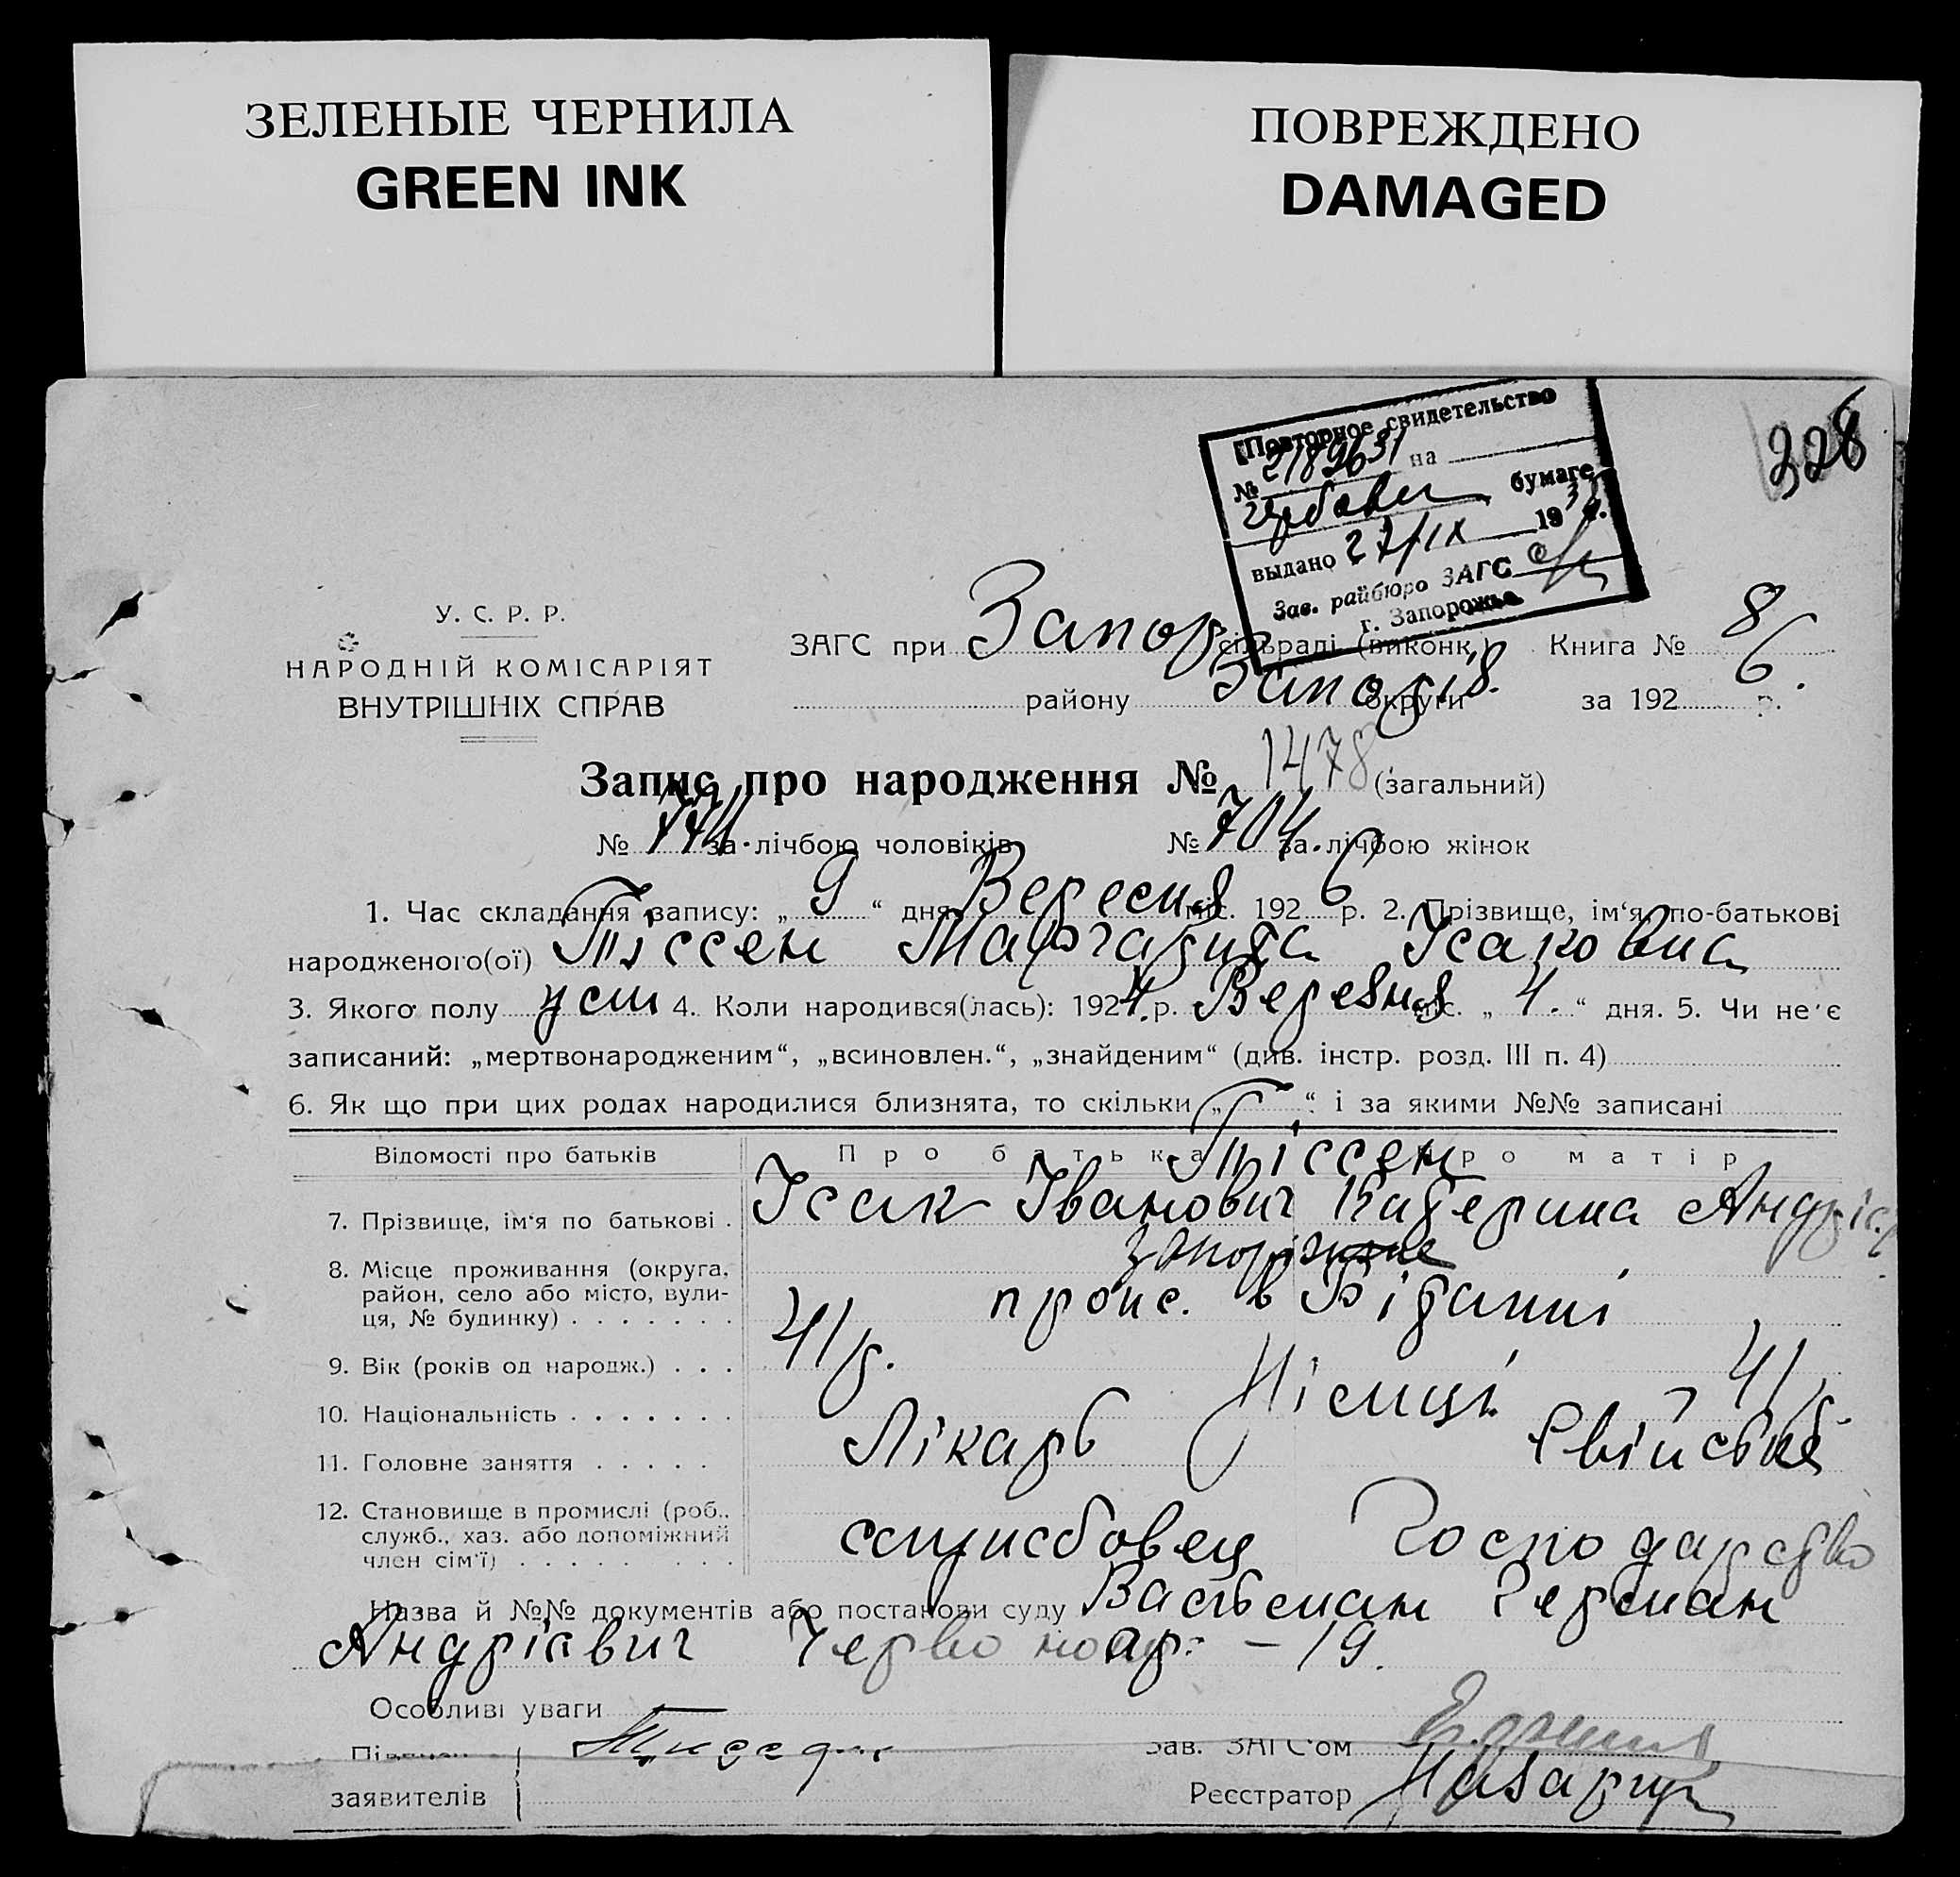 ЗЕЛЕНЫЕ ЧЕРНИЛА
GREEN INK
ПОВРЕЖДЕНО
DAMAGED
328
Повторное свидетельство
№ 2189631 на
гербовой бумаге
выдано 27/IX 193 г.
Зав. райбюро ЗАГС
г. Запорожье
У. С. Р. Р.
НАРОДНІЙ КОМІСАРІЯТ
ВНУТРІШНІХ СПРАВ
ЗАГС при Запор сільраді (виконк.) Книга № 8
району Запоріз. округи за 1926 р.
Запис про народження № 1478 (загальний)
№ 774. за лічбою чоловіків № 704. за лічбою жінок
1. Час складання запису: „9“ дня Вересня міс. 1926 р. 2. Прізвище, ім'я, по-батькові
народженого(ої) Тіссен Маргарита Ісаковна
3. Якого полу 4. Коли народився(лась): 1924 р. Вересня міс. „4.“ дня. 5. Чи не є
записаний: „мертвонародженим“, „всиновлен.“, „знайденим“ (див. інстр. розд. III п. 4)
6. Як що при цих родах народилися близнята, то скільки „ “ і за якими №№ записані
Відомості про батьків Про батька Про матір
Тіссен
7. Прізвище, ім'я по батькові . Ісак Іванович Катерина Андріє
8. Місце проживання (округа, район, село або місто, вулиця, № будинку)
прож. в Вітанії
9. Вік (років од народж.) . . . 41 р. 41 р.
10. Національність Німці
11. Головне заняття Лікарь Свійське
12. Становище в промислі (роб., служб., хаз. або допоміжний член сім'ї) Господарство
Назва й №№ документів або постанови суду Васьман Герман
Андрієвич Червоноар. – 19.
Особливі уваги
заявителів
Зав. ЗАГС'ом
Реєстратор